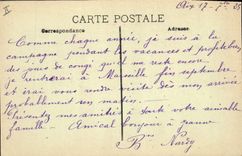 II
CARTE POSTALE
Correspondance
Adresse
Aix 17-7-35
Comme chaque année, je suis à la
campagne pendant les vacances et profiterai
des jours de congé qui me reste encore.
Je rentrerai à Marseille fin septembre
et irai vous rendre visite dès mon arrivée
probablement son matin.
Présentez mes amitiés à toute votre aimable
famille. Amical bonjour à
B. Nardy